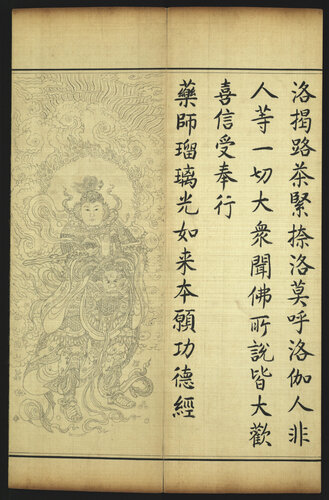 洛揭路荼緊捺洛莫呼洛伽人非
人䓁一切大衆聞佛所說皆大歡
喜信受奉行
藥師瑠璃光如来本願功德經